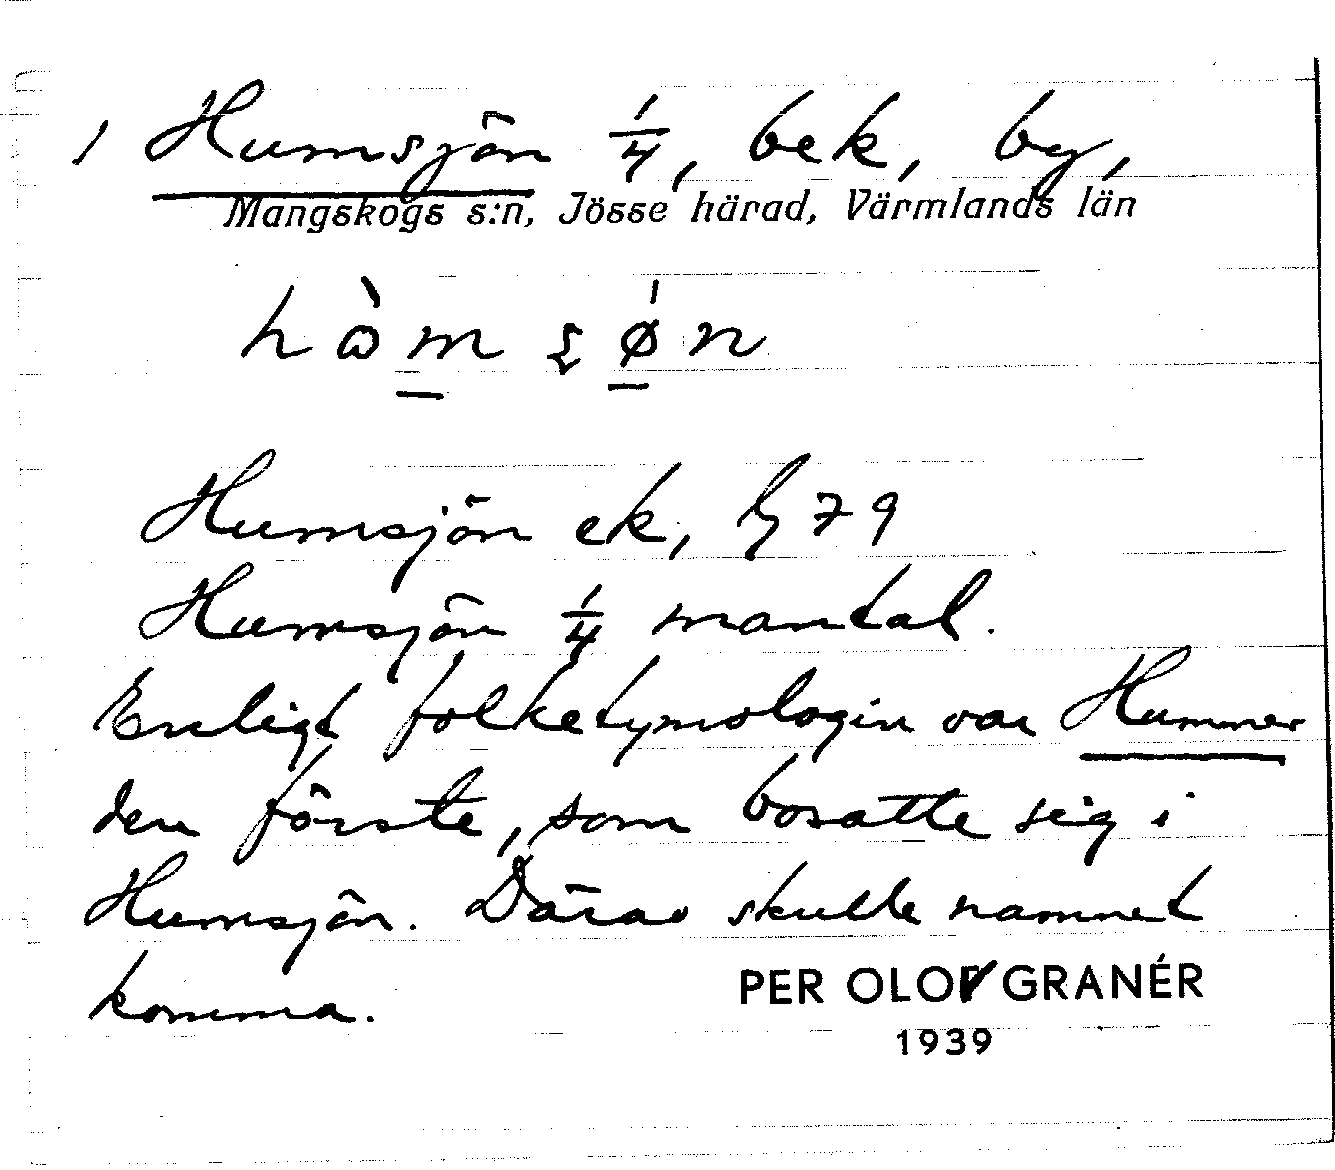 1 Humsjön 1/4, bek, by,
Mangskogs s:n, Jösse härad, Värmlands län
Humsjön ek, 79
Humsjön 1/4 mantal.
Enligt folketymologin var Hummer
den förste, som bosatte sig i
Humsjön. Därav skulle namnet
komma.
PER OLOV GRANÉR
1939